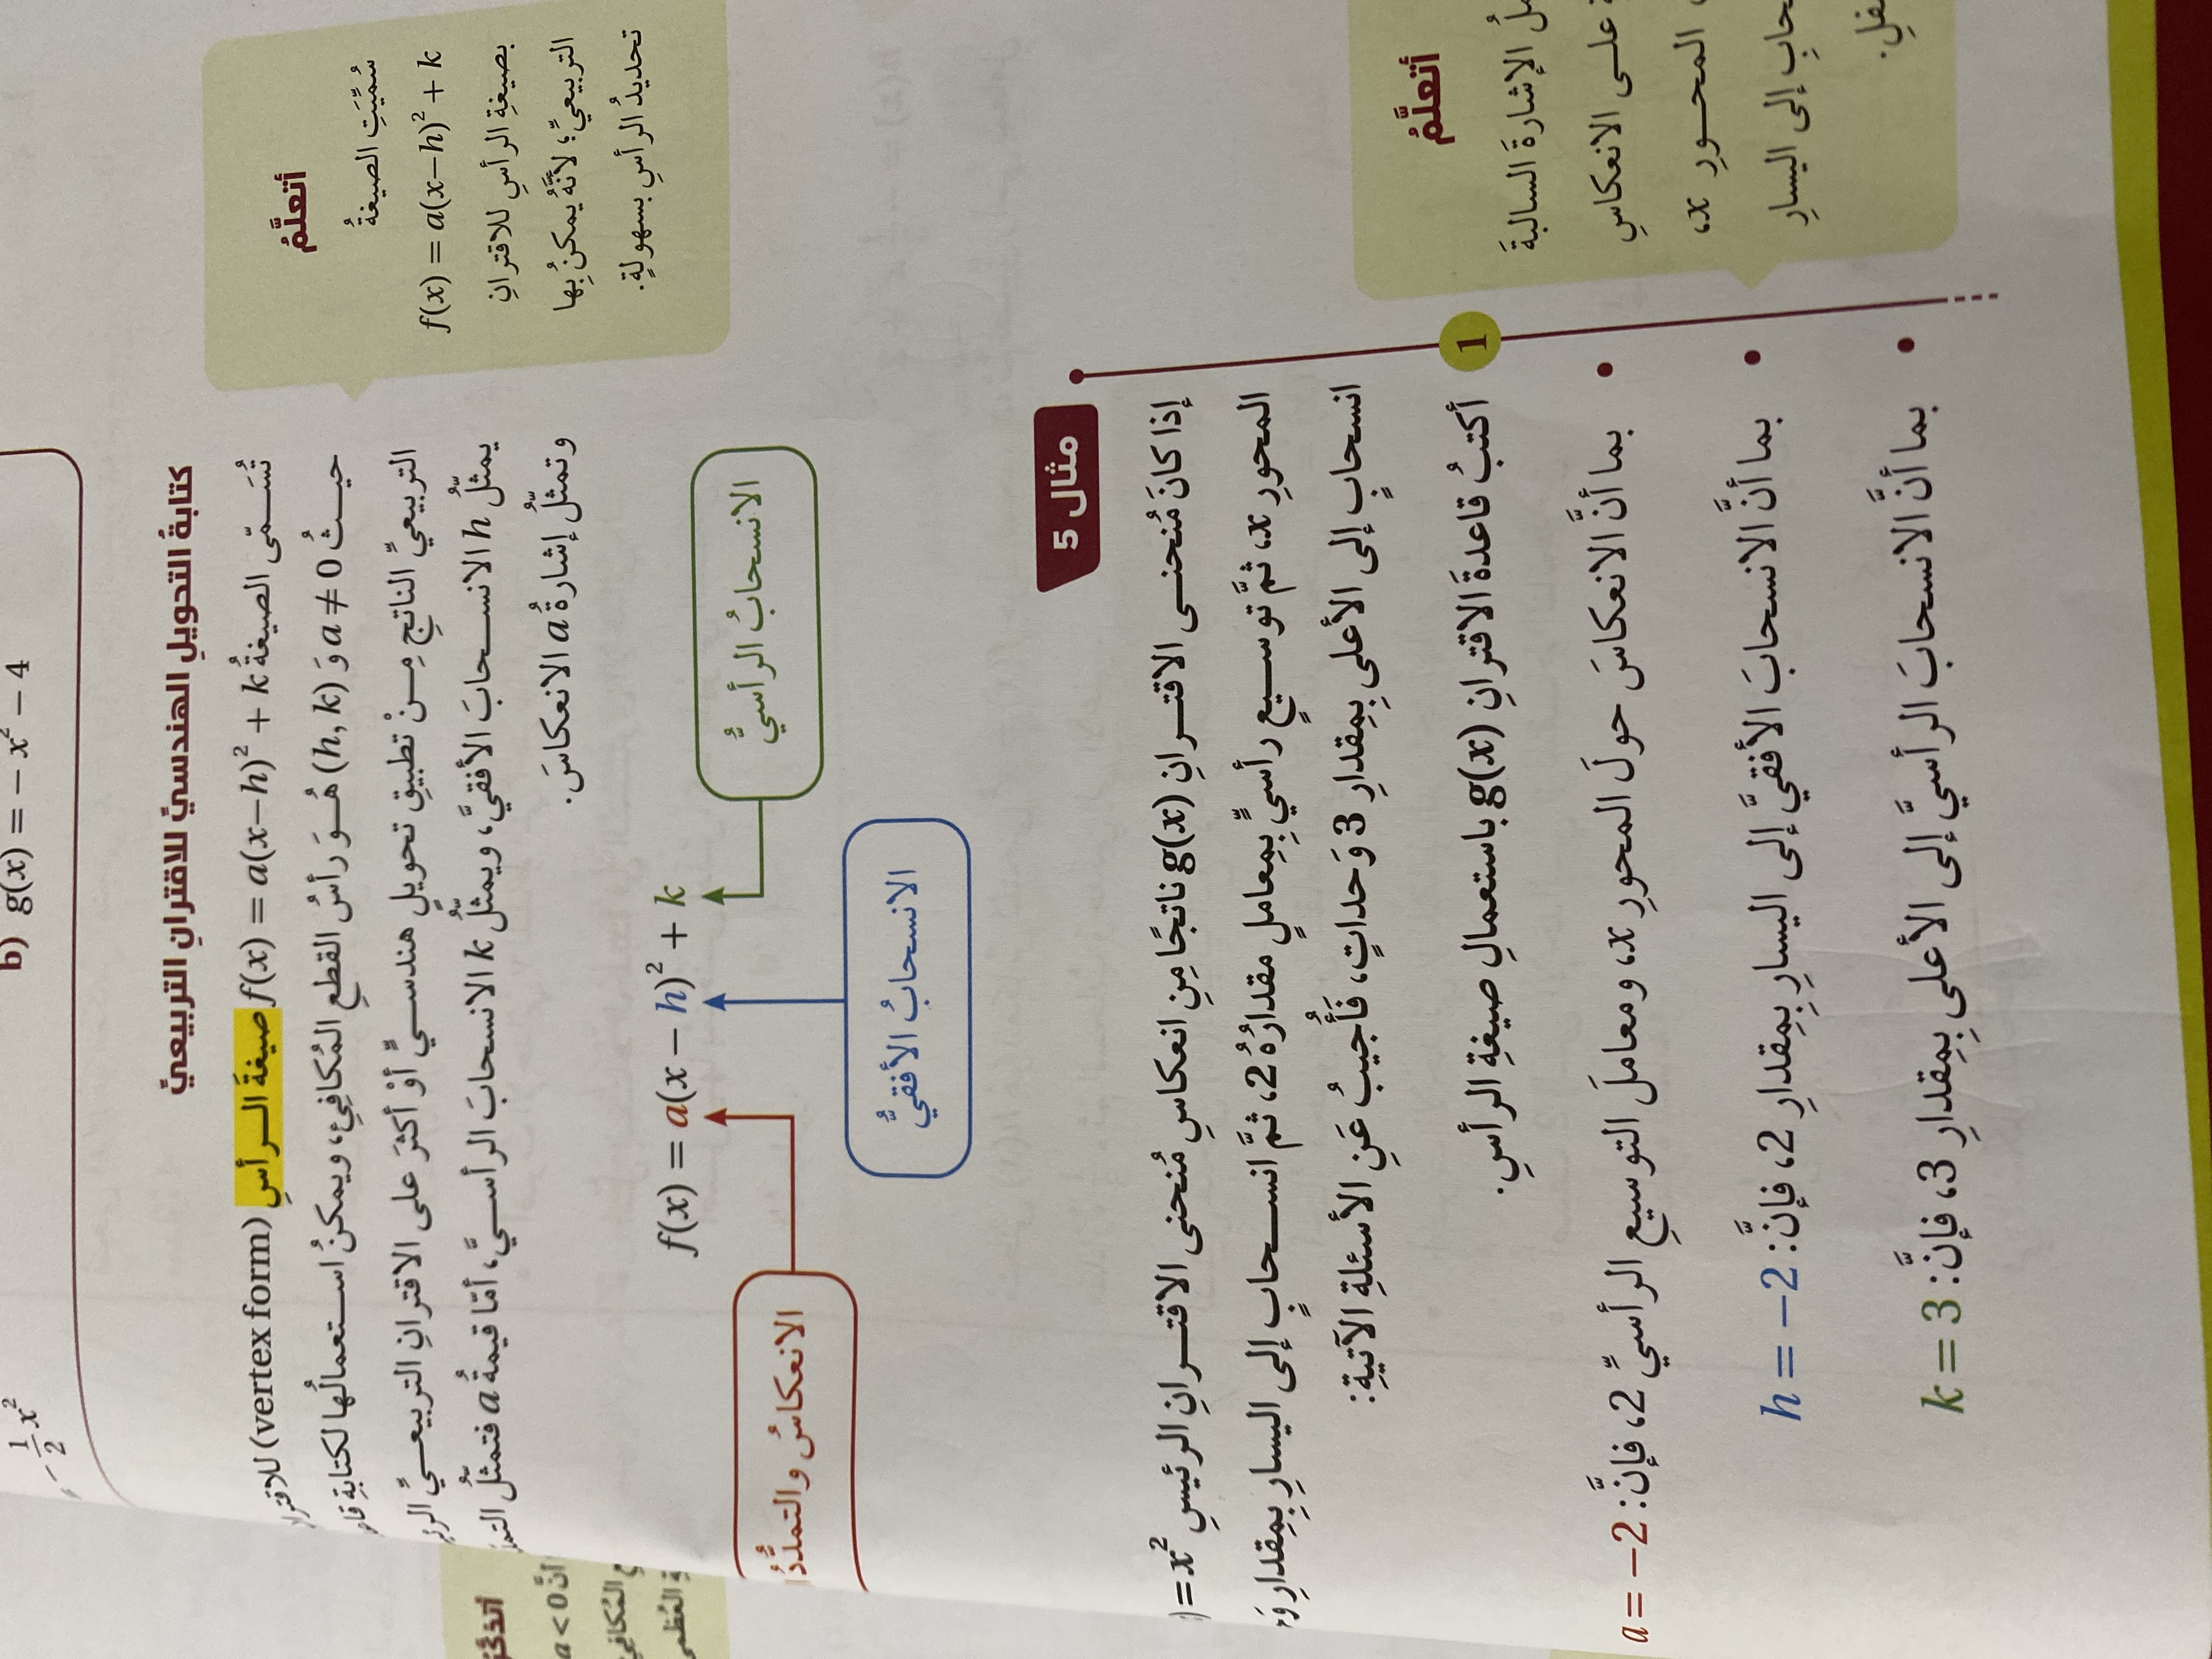 b) g(x) = − x² − 4
− 1/2 x²
كتابةُ التحويلِ الهندسيِّ للاقترانِ التربيعيِّ
تُسَمّى الصيغةُ f(x) = a(x−h)² + k صيغةَ الرأسِ (vertex form)
حيثُ a ≠ 0 وَ (h, k) هُوَ رأسُ القطعِ المُكافِئِ، ويمكنُ استعمالُها لكتابةِ
التربيعيِّ الناتجِ مِنْ تطبيقِ تحويلٍ هندسيٍّ أوْ أكثرَ على الاقترانِ التربيعيِّ
يمثلُ h الانسحابَ الأفقيَّ، ويمثلُ k الانسحابَ الرأسيَّ، أمّا قيمةُ a فتمثلُ
وتمثلُ إشارةُ a الانعكاسَ.
أتعلَّمُ
سُمِّيَتِ الصيغةُ
f(x) = a(x−h)² + k
بصيغةِ الرأسِ للاقترانِ
التربيعيِّ؛ لأنَّهُ يمكنُ بها
تحديدُ الرأسِ بسهولةٍ.
f(x) = a(x − h)² + k
الانسحابُ الرأسيُّ
الانسحابُ الأفقيُّ
الانعكاسُ والتمدُّدُ
أتذكَّرُ
a < 0
مثال 5
إذا كانَ مُنحنى الاقترانِ g(x) ناتجًا مِنِ انعكاسِ مُنحنى الاقترانِ الرئيسِ = x²
المحورِ x، ثمَّ توسيعٍ رأسيٍّ بِمعاملٍ مقدارُهُ 2، ثمَّ انسحابٍ إلى اليسارِ بِمِقدارِ
انسحابٍ إلى الأعلى بِمِقدارِ 3 وَحداتٍ، فَأُجيبُ عَنِ الأسئلةِ الآتيةِ:
1 أكتبُ قاعدةَ الاقترانِ g(x) باستعمالِ صيغةِ الرأسِ.
• بما أنَّ الانعكاسَ حولَ المحورِ x، ومعاملَ التوسيعِ الرأسيِّ 2، فإنَّ: a = −2
• بما أنَّ الانسحابَ الأفقيَّ إلى اليسارِ بِمِقدارِ 2، فإنَّ: h = −2
• بما أنَّ الانسحابَ الرأسيَّ إلى الأعلى بِمِقدارِ 3، فإنَّ: k = 3
أتعلَّمُ
الإشارةَ السالبةَ
على الانعكاسِ
المحورِ x،
إلى اليسارِ